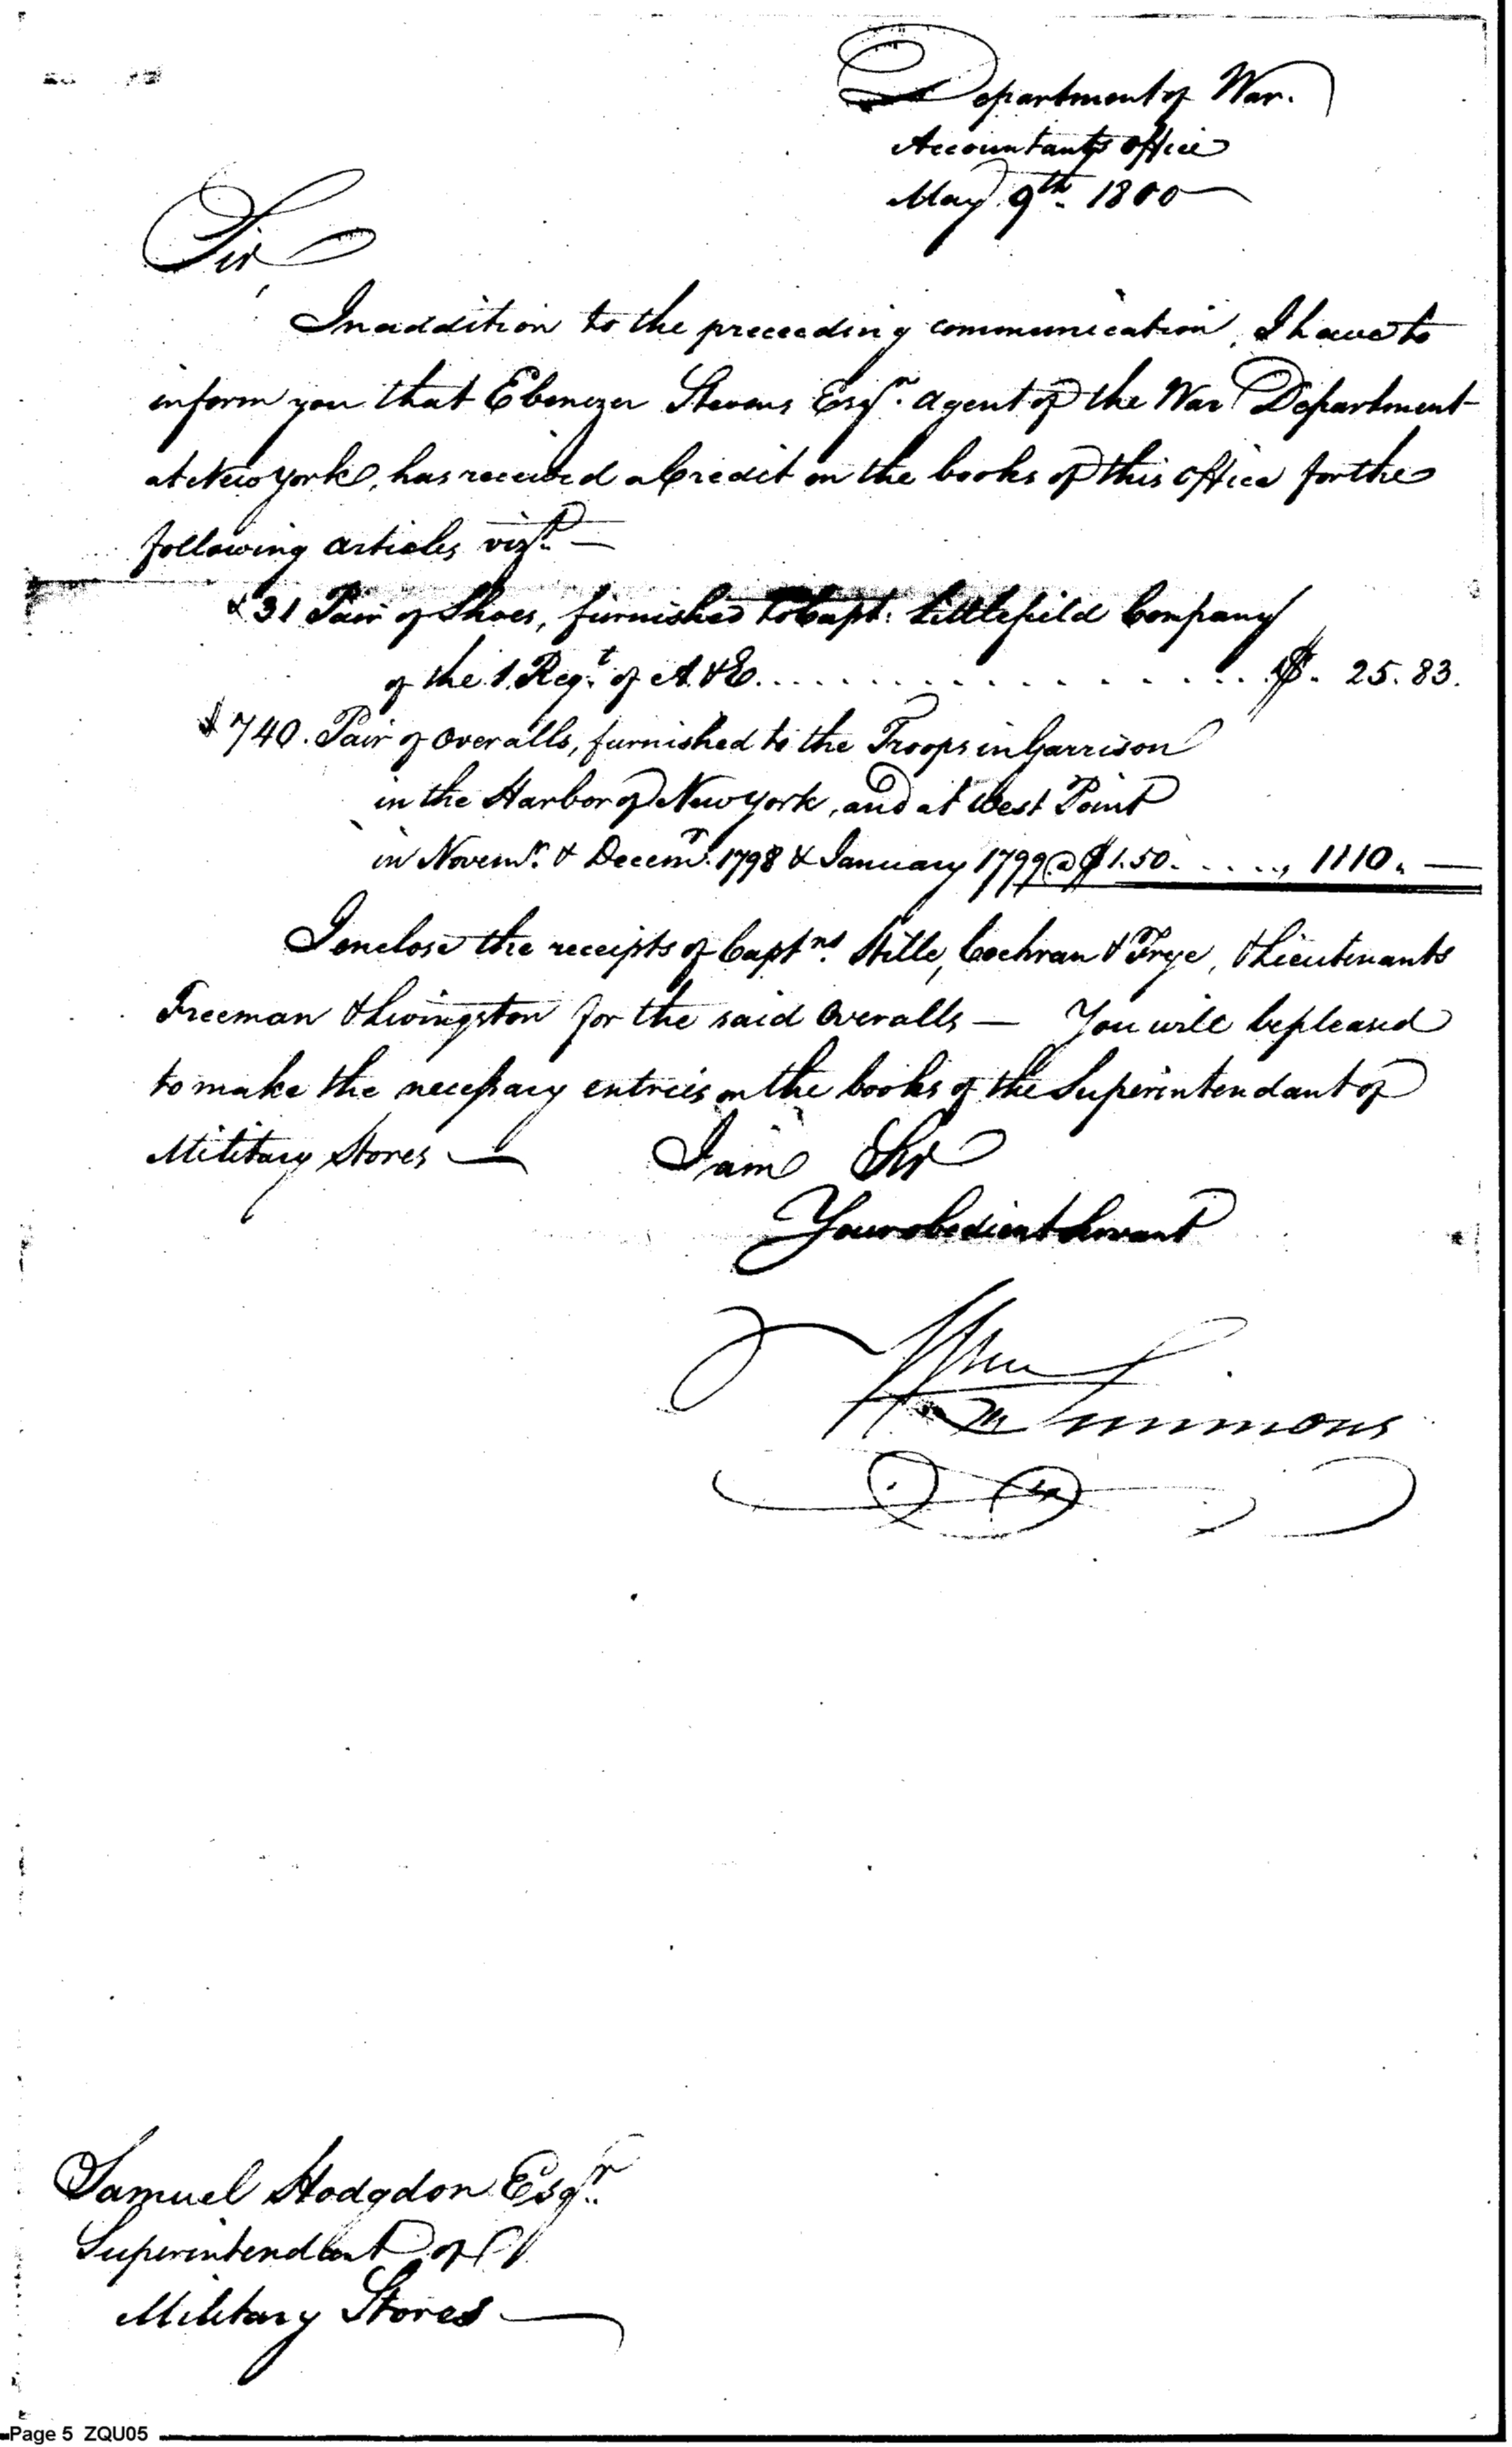 Department of War.
Accountants office
May 9th. 1800
Sir
In addition to the preceeding communication, I have to
inform you that Ebenezer Stevens Esqr. agent of the War Department
at New York, has received a Credit on the books of this office for the
following articles vizt. —
31 Pair of Shoes, furnished to Capt. Littlefield Company
of the 1. Regt. of A. & E. . . . . . . . . . . . . . . . . . . $. 25.83.
740. Pair of Overalls, furnished to the Troops in Garrison
in the Harbor of New York, and at West Point
in Novemr. & Decemr. 1798 & January 1799 @ $1.50. . . . . ., 1110. —
I enclose the receipts of Captns. Stille, Cochran & Frye, & Lieutenants
Freeman & Livingston for the said Overalls — You will be pleased
to make the necessary entries on the books of the Superintendant of
Military Stores — I am Sir
Your obedient Servant
Wm Simmons
Samuel Hodgdon Esqr.
Superintendent of
Military Stores —
Page 5 ZQU05